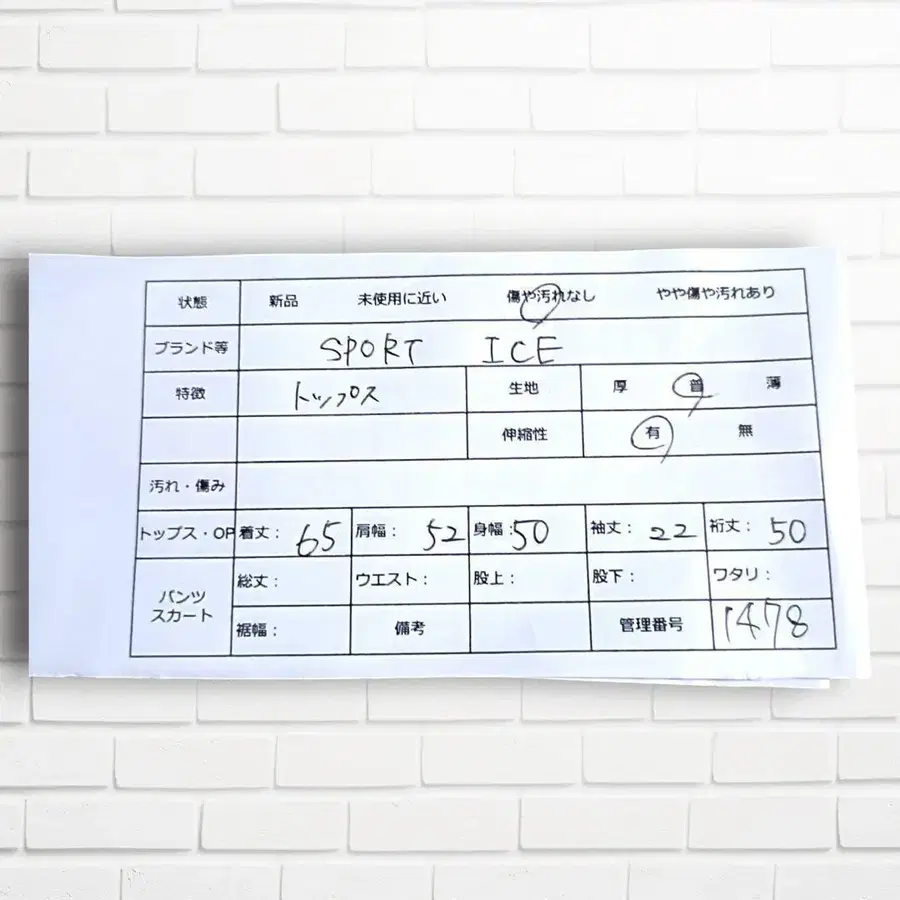 状態 新品 未使用に近い 傷や汚れなし やや傷や汚れあり
ブランド等 SPORT ICE
特徴 トップス 生地 厚 普 薄
伸縮性 有 無
汚れ・傷み
トップス・OP 着丈： 65 肩幅： 52 身幅： 50 袖丈： 22 裄丈： 50
パンツ
スカート
総丈： ウエスト： 股上： 股下： ワタリ：
裾幅： 備考 管理番号 1478